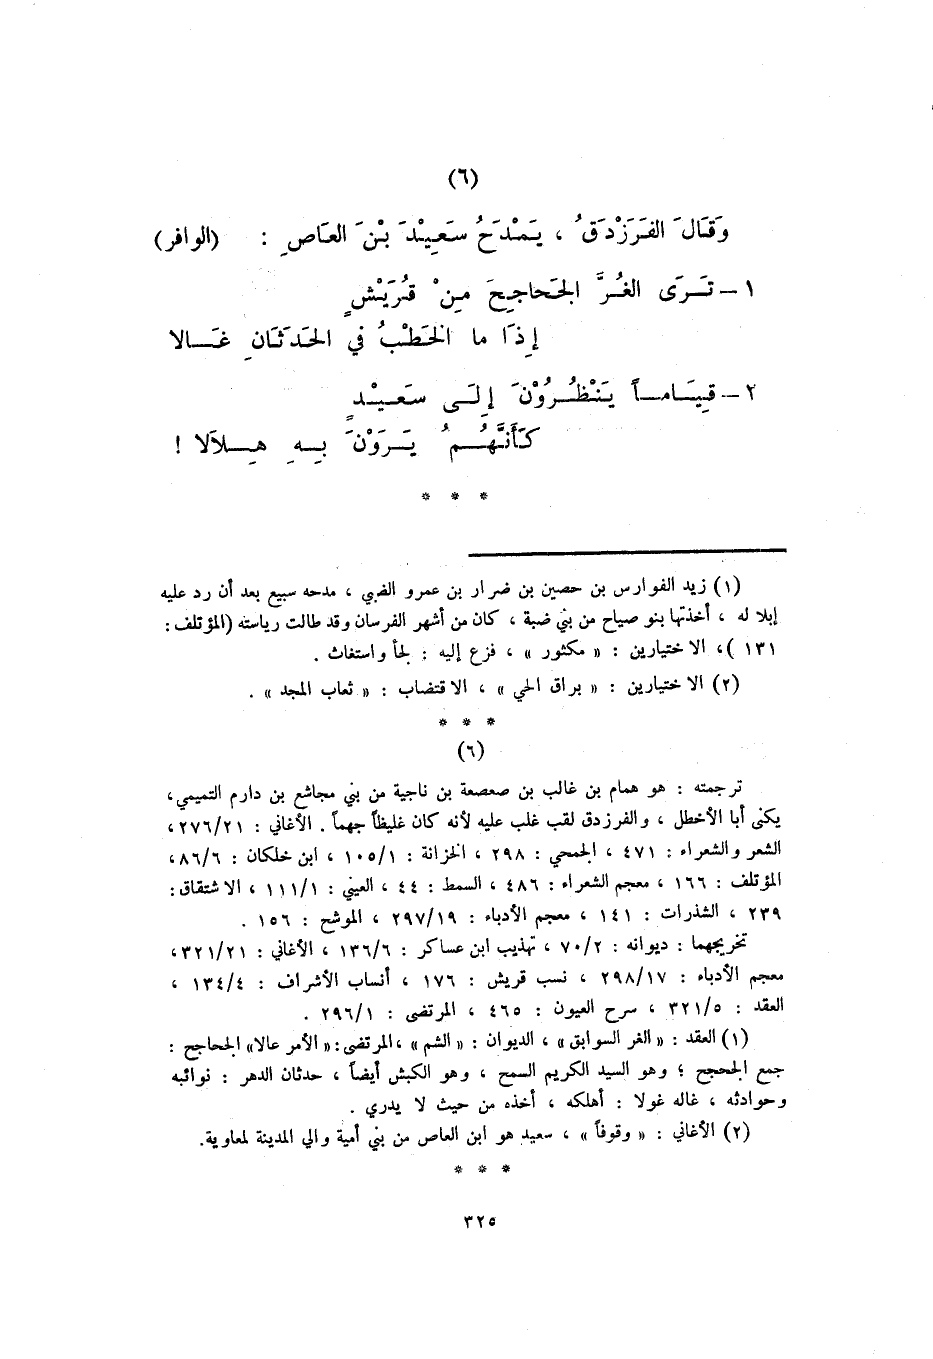 (٦)
وَقَالَ الفَرَزْدَقُ ، يَمْدَحُ سَعِيْدَ بْنَ العَاصِ : (الوافر)
١ – تَرَى الغُرَّ الجَحَاجِحَ مِنْ قُرَيْشٍ
إِذَا ما الخَطْبُ في الحَدَثَانِ غَالا
٢ – قِيَاماً يَنْظُرُوْنَ إِلَى سَعِيْدٍ
كَأَنَّهُمُ يَرَوْنَ بِهِ هِلاَلا !
* * *
(١) زيد الفوارس بن حصين بن ضرار بن عمرو الضبي ، مدحه سبيع بعد أن رد عليه
إبلا له ، أخذتها بنو صياح من بني ضبة ، كان من أشهر الفرسان وقد طالت رياسته (المؤتلف :
١٣١ )، الاختيارين : « مكثور » ، فزع إليه : لجأ واستغاث .
(٢) الاختيارين : « براق الحي » ، الاقتضاب : « ثعاب المجد » .
* * *
(٦)
ترجمته : هو همام بن غالب بن صعصعة بن ناجية من بني مجاشع بن دارم التميمي،
يكنى أبا الأخطل ، والفرزدق لقب غلب عليه لأنه كان غليظاً جهماً . الأغاني : ٢٧٦/٢١،
الشعر والشعراء : ٤٧١ ، الجمحي : ٢٩٨ ، الخزانة : ١٠٥/١ ، ابن خلكان : ٨٦/٦،
المؤتلف : ١٦٦ ، معجم الشعراء : ٤٨٦ ، السمط : ٤٤ ، العيني : ١١١/١ ، الاشتقاق:
٢٣٩ ، الشذرات : ١٤١ ، معجم الأدباء : ٢٩٧/١٩ ، الموشح : ١٥٦ .
تخريجهما : ديوانه : ٧٠/٢ ، تهذيب ابن عساكر : ١٣٦/٦ ، الأغاني : ٣٢١/٢١،
معجم الأدباء : ٢٩٨/١٧ ، نسب قريش : ١٧٦ ، أنساب الأشراف : ١٣٤/٤ ،
العقد : ٣٢١/٥ ، سرح العيون : ٤٦٥ ، المرتضى : ٢٩٦/١ .
(١) العقد : « الغر السوابق » ، الديوان : « الشم » ،المرتضى:« الأمر عالا» الجحاجح :
جمع الجحجح ؛ وهو السيد الكريم السمح ، وهو الكبش أيضاً ، حدثان الدهر : نوائبه
وحوادثه ، غاله غولا : أهلكه ، أخذه من حيث لا يدري .
(٢) الأغاني : « وقوفاً » ، سعيد هو ابن العاص من بني أمية والي المدينة لمعاوية.
* * *
٣٢٥